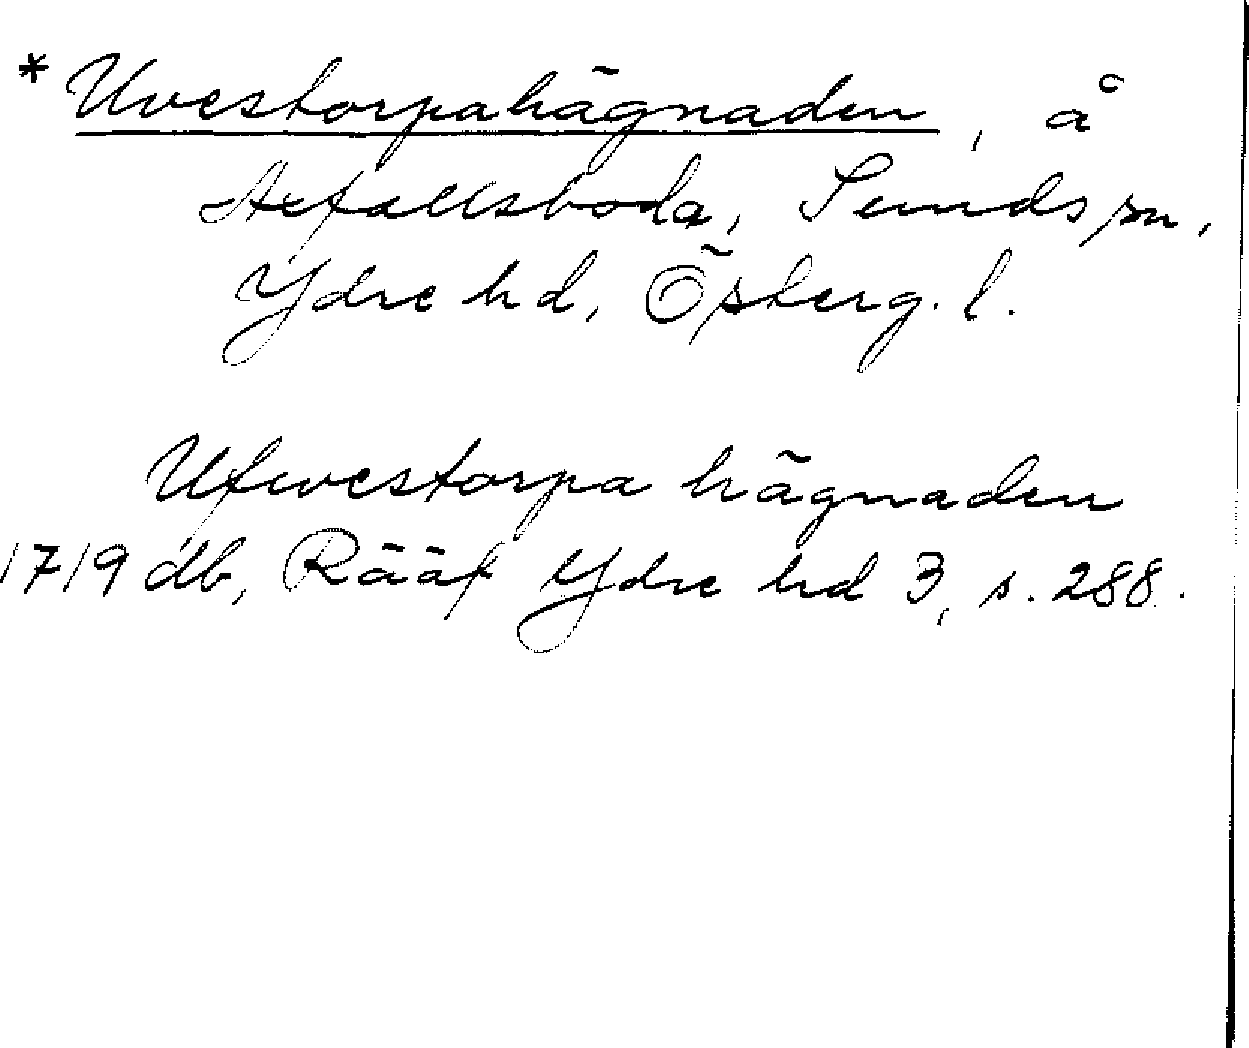 * Uvestorpahägnaden, å
Stefallsboda, Sunds sn,
Ydre hd, Österg. l.
Ufwestorpa hägnaden
1719 db, Rääf Ydre hd 3, s. 288.